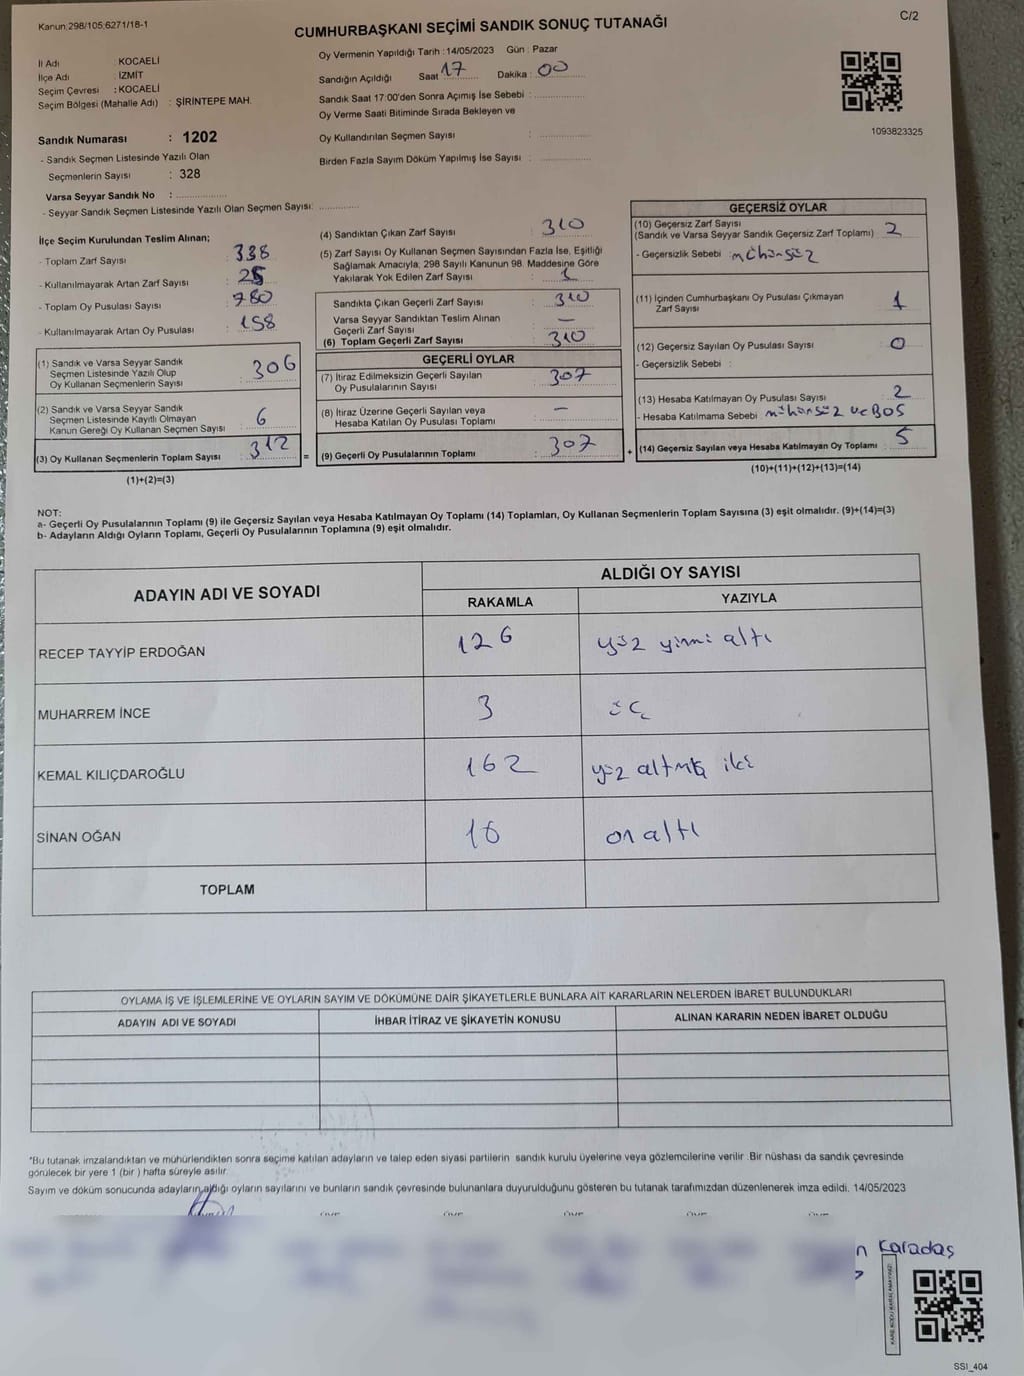 Kanun:298/105,6271/18-1
C/2
CUMHURBAŞKANI SEÇİMİ SANDIK SONUÇ TUTANAĞI
İl Adı : KOCAELİ
İlçe Adı : İZMİT
Seçim Çevresi : KOCAELİ
Seçim Bölgesi (Mahalle Adı) : ŞİRİNTEPE MAH.
Sandık Numarası : 1202
- Sandık Seçmen Listesinde Yazılı Olan
Seçmenlerin Sayısı : 328
Varsa Seyyar Sandık No :
- Seyyar Sandık Seçmen Listesinde Yazılı Olan Seçmen Sayısı:
Oy Vermenin Yapıldığı Tarih : 14/05/2023 Gün : Pazar
Sandığın Açıldığı Saat 17 Dakika : 00
Sandık Saat 17:00'den Sonra Açımış İse Sebebi :
Oy Verme Saati Bitiminde Sırada Bekleyen ve
Oy Kullandırılan Seçmen Sayısı :
Birden Fazla Sayım Döküm Yapılmış İse Sayısı :
1093823325
İlçe Seçim Kurulundan Teslim Alınan;
- Toplam Zarf Sayısı : 338
- Kullanılmayarak Artan Zarf Sayısı : 25
- Toplam Oy Pusulası Sayısı : 780
- Kullanılmayarak Artan Oy Pusulası : 158
(1) Sandık ve Varsa Seyyar Sandık
Seçmen Listesinde Yazılı Olup
Oy Kullanan Seçmenlerin Sayısı : 306
(2) Sandık ve Varsa Seyyar Sandık
Seçmen Listesinde Kayıtlı Olmayan
Kanun Gereği Oy Kullanan Seçmen Sayısı : 6
(3) Oy Kullanan Seçmenlerin Toplam Sayısı : 312
(1)+(2)=(3)
(4) Sandıktan Çıkan Zarf Sayısı : 310
(5) Zarf Sayısı Oy Kullanan Seçmen Sayısından Fazla İse, Eşitliği
Sağlamak Amacıyla, 298 Sayılı Kanunun 98. Maddesine Göre
Yakılarak Yok Edilen Zarf Sayısı :
Sandıkta Çıkan Geçerli Zarf Sayısı : 310
Varsa Seyyar Sandıktan Teslim Alınan
Geçerli Zarf Sayısı : —
(6) Toplam Geçerli Zarf Sayısı : 310
GEÇERLİ OYLAR
(7) İtiraz Edilmeksizin Geçerli Sayılan
Oy Pusulalarının Sayısı : 307
(8) İtiraz Üzerine Geçerli Sayılan veya
Hesaba Katılan Oy Pusulası Toplamı : —
= (9) Geçerli Oy Pusulalarının Toplamı : 307
GEÇERSİZ OYLAR
(10) Geçersiz Zarf Sayısı
(Sandık ve Varsa Seyyar Sandık Geçersiz Zarf Toplamı) : 2
- Geçersizlik Sebebi : mühürsüz
(11) İçinden Cumhurbaşkanı Oy Pusulası Çıkmayan
Zarf Sayısı : 1
(12) Geçersiz Sayılan Oy Pusulası Sayısı : 0
- Geçersizlik Sebebi :
(13) Hesaba Katılmayan Oy Pusulası Sayısı : 2
- Hesaba Katılmama Sebebi : mühürsüz ve BOŞ
+ (14) Geçersiz Sayılan veya Hesaba Katılmayan Oy Toplamı : 5
(10)+(11)+(12)+(13)=(14)
NOT:
a- Geçerli Oy Pusulalarının Toplamı (9) ile Geçersiz Sayılan veya Hesaba Katılmayan Oy Toplamı (14) Toplamları, Oy Kullanan Seçmenlerin Toplam Sayısına (3) eşit olmalıdır. (9)+(14)=(3)
b- Adayların Aldığı Oyların Toplamı, Geçerli Oy Pusulalarının Toplamına (9) eşit olmalıdır.
ADAYIN ADI VE SOYADI
ALDIĞI OY SAYISI
RAKAMLA YAZIYLA
RECEP TAYYİP ERDOĞAN 126 yüz yirmi altı
MUHARREM İNCE 3 üç
KEMAL KILIÇDAROĞLU 162 yüz altmış iki
SİNAN OĞAN 16 on altı
TOPLAM
OYLAMA İŞ VE İŞLEMLERİNE VE OYLARIN SAYIM VE DÖKÜMÜNE DAİR ŞİKAYETLERLE BUNLARA AİT KARARLARIN NELERDEN İBARET BULUNDUKLARI
ADAYIN ADI VE SOYADI İHBAR İTİRAZ VE ŞİKAYETİN KONUSU ALINAN KARARIN NEDEN İBARET OLDUĞU
*Bu tutanak imzalandıktan ve mühürlendikten sonra seçime katılan adayların ve talep eden siyasi partilerin sandık kurulu üyelerine veya gözlemcilerine verilir. Bir nüshası da sandık çevresinde
görülecek bir yere 1 (bir ) hafta süreyle asılır.
Sayım ve döküm sonucunda adayların aldığı oyların sayılarını ve bunların sandık çevresinde bulunanlara duyurulduğunu gösteren bu tutanak tarafımızdan düzenlenerek imza edildi. 14/05/2023
n Karadaş
SSI_404